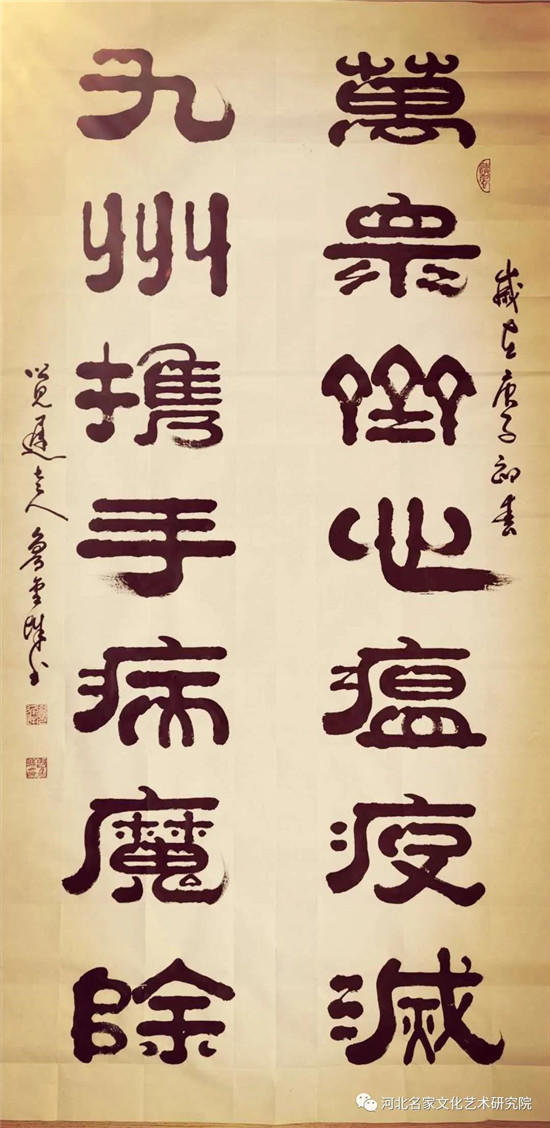 萬眾齊心瘟疫滅
歲在庚子初春
九州携手病魔除
覺遲老人
河北名家文化艺术研究院